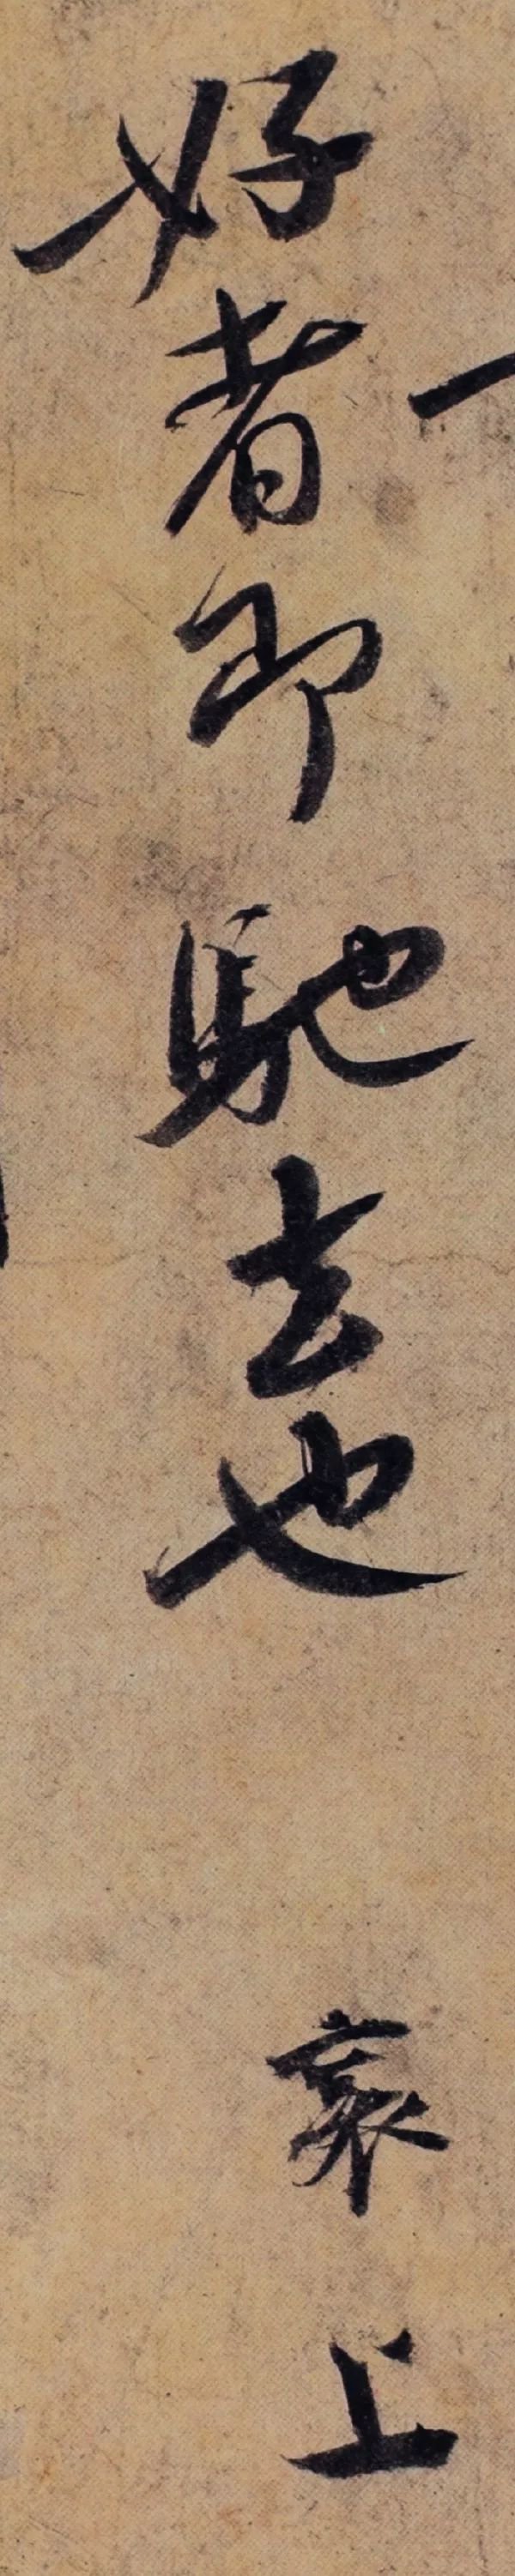 好者即馳去也 襄上